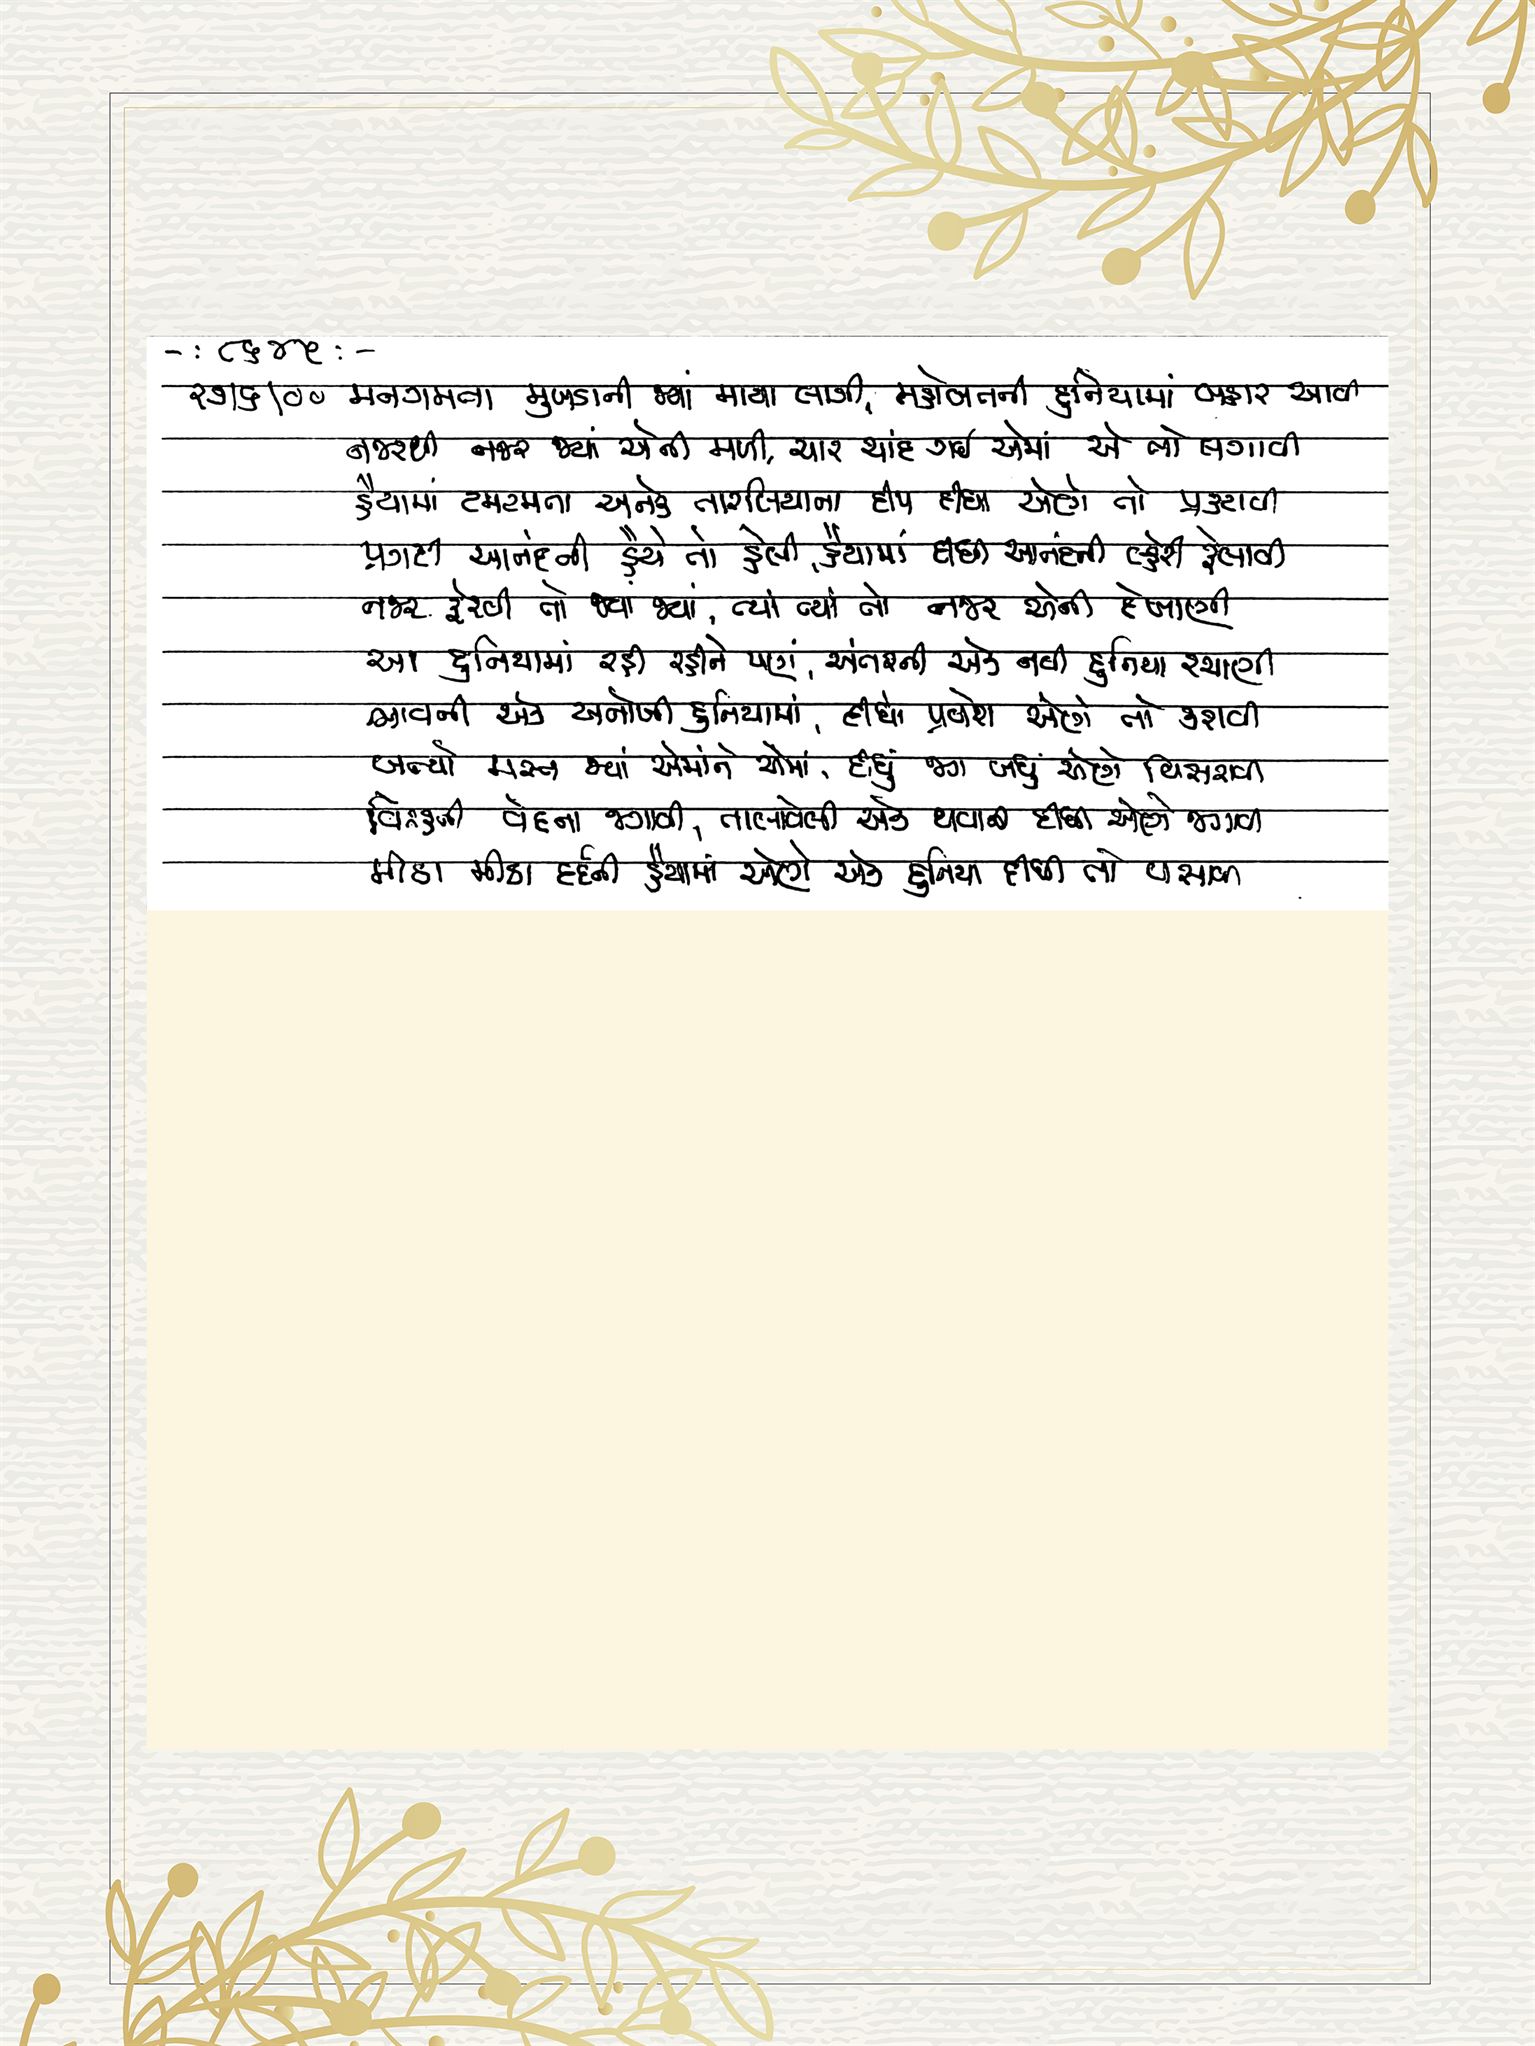 -: ૮૬૪૫ :-
૨૭/૬/૦૦ મનગમતા મુખડાની જ્યાં માયા લાગી, મહોબતની દુનિયામાં બહાર આવી
નજરથી નજર જ્યાં એની મળી, ચાર ચાંદ ગઈ એમાં એ તો લગાવી
હૈયામાં ટમટમતા અનેક તારલિયાના દીપ દીધા એણે તો પ્રકટાવી
પ્રગટી આનંદની હૈયે તો હેલી, હૈયામાં દીધી આનંદની લહેરી ફેલાવી
નજર ફેરવી તો જ્યાં જ્યાં, ત્યાં ત્યાં તો નજર એની દેખાણી
આ દુનિયામાં રહી રહીને પણ, અંતરની એક નવી દુનિયા રચાણી
ભાવની એક અનોખી દુનિયામાં, દીધો પ્રવેશ એણે તો કરાવી
બન્યો મસ્ત જ્યાં એમાંને એમાં, દીધું જગ બધું એણે વિસરાવી
વિરહની વેદના જગાવી, તાલાવેલી એક થવાની દીધી એણે જગાવી
મીઠા મીઠા દર્દની હૈયામાં એણે એક દુનિયા દીધી તો વસાવી